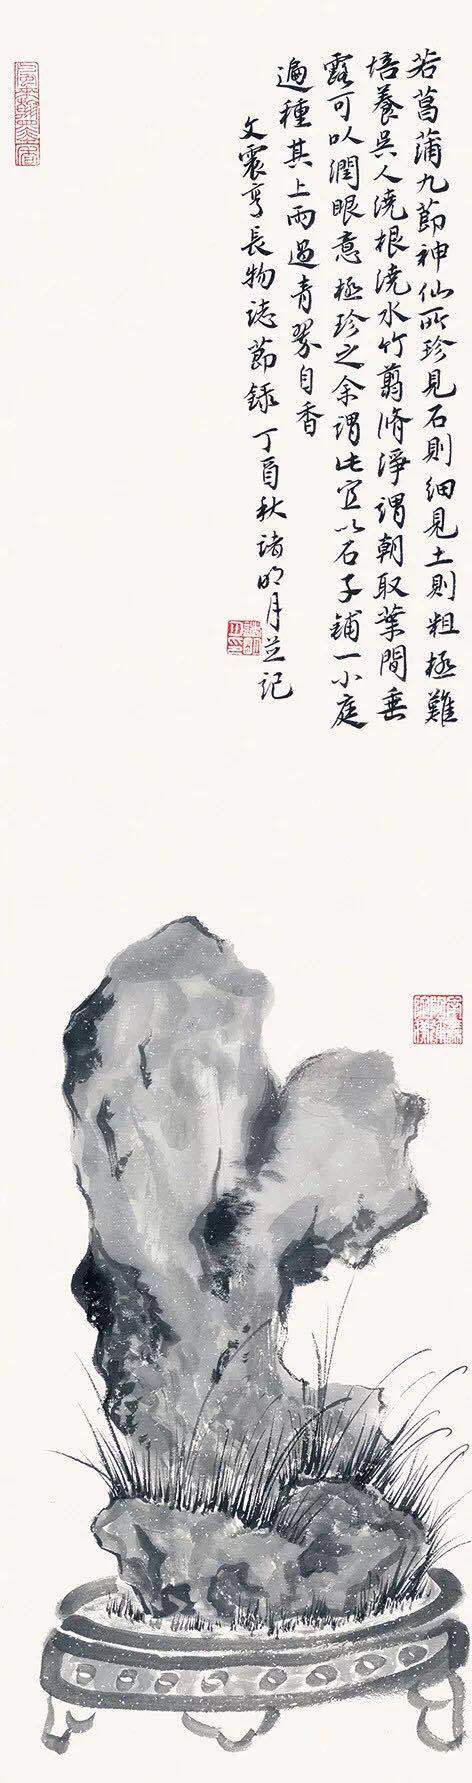 若菖蒲九節神仙所珍見石則細見土則粗極難
培養吳人洗根澆水竹翦脩淨謂朝取葉間垂
露可以潤眼意極珍之余謂此宜以石子鋪一小庭
遍種其上雨過青翠自香
文震亨長物誌節錄 丁酉秋諸明月並記